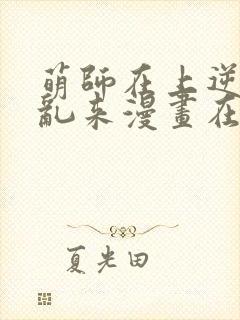 萌師在上逆
亂來漫畫在
夏光田